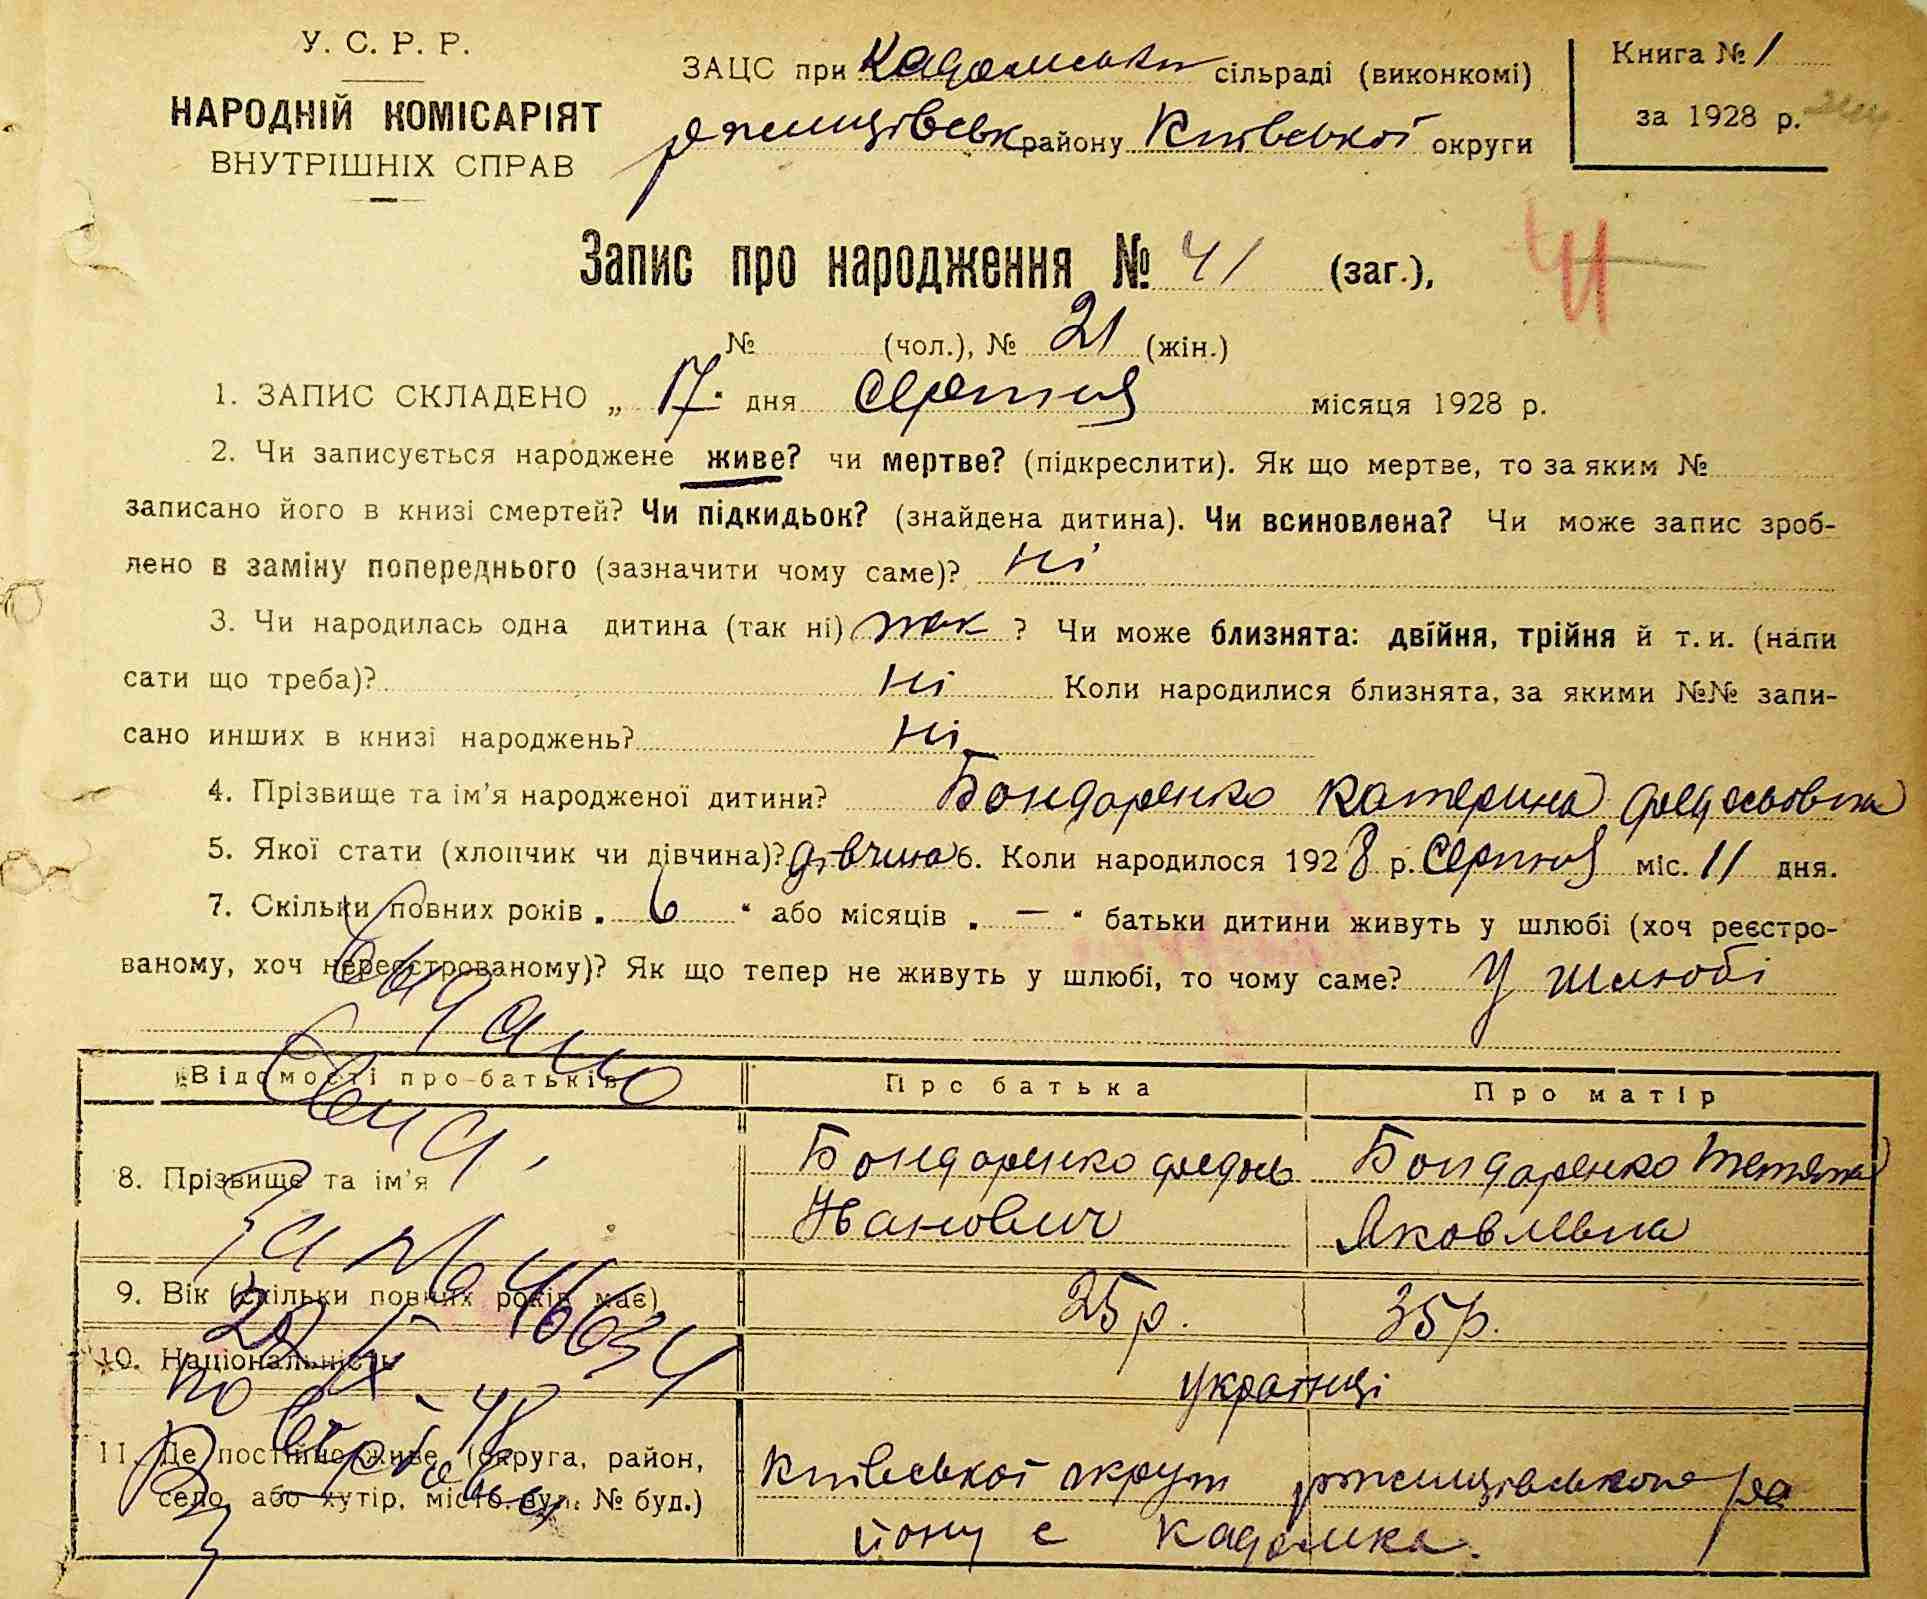 У. С. Р. Р.
НАРОДНІЙ КОМІСАРІЯТ
ВНУТРІШНІХ СПРАВ
ЗАЦС при Кадомськи сільраді (виконкомі)
ржищівськ району Київської округи
Книга № 1
за 1928 р.
Запис про народження № 41 (заг.),
41
№ (чол.), № 21 (жін.)
1. ЗАПИС СКЛАДЕНО „ 17 " дня Серпня місяця 1928 р.
2. Чи записується народжене живе? чи мертве? (підкреслити). Як що мертве, то за яким №
записано його в книзі смертей? Чи підкидьок? (знайдена дитина). Чи всиновлена? Чи може запис зроб-
лено в заміну попереднього (зазначити чому саме)? Ні
3. Чи народилась одна дитина (так ні) так ? Чи може близнята: двійня, трійня й т. и. (напи
сати що треба)? Ні Коли народилися близнята, за якими №№ запи-
сано инших в книзі народжень? Ні
4. Прізвище та ім'я народженої дитини? Бондаренко Катерина Федосьовна
5. Якої стати (хлопчик чи дівчина)? дівчина 6. Коли народилося 1928 р. Серпня міс. 11 дня.
7. Скільки повних років „ 6 " або місяців „ — " батьки дитини живуть у шлюбі (хоч реєстро-
ваному, хоч нереєстрованому)? Як що тепер не живуть у шлюбі, то чому саме? У шлюбі
Відомості про батьків Про батька Про матір
8. Прізвище та ім'я Бондаренко Федось Иванович Бондаренко Тетяна Яковлевна
9. Вік (скільки повних років має) 25 р. 35 р.
10. Національність українці
11. Де постійно живе (округа, район, Київської округи ржищівського ра
село, або хутір, місто, вул. № буд.) йону с Кадомка.